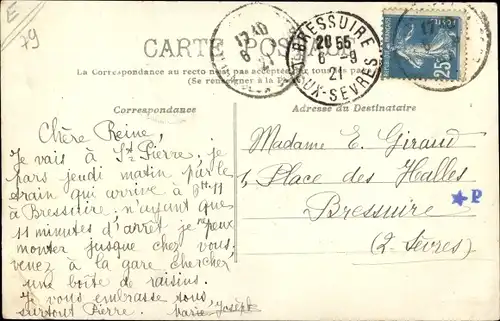 E
79
CARTE POSTALE
La Correspondance au recto n'est pas acceptée par tous les pays
(Se renseigner à la Poste)
17 40
6
21
BRESSUIRE
20 55
6 - 9
21
DEUX-SÈVRES
17
25
Correspondance
Adresse du Destinataire
Chère Reine,
Je vais à St Pierre, je
pars jeudi matin par le
train qui arrive à 8H11
à Bressuire, n'ayant que
11 minutes d'arrêt je ne peux
monter jusque chez vous.
venez à la gare chercher
une boîte de raisins.
Je vous embrasse tous
surtout Pierre. Marie Joseph
Madame E. Giraud
1, Place des Halles
Bressuire
(2-Sèvres)
P